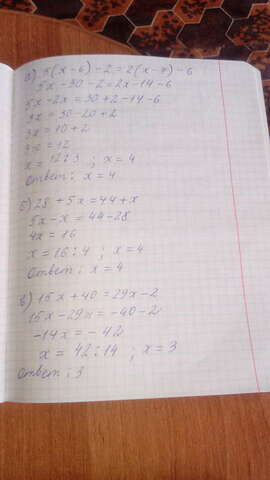 а) 5(x-6)-2=2(x-7)-6
5x-30-2=2x-14-6
5x-2x=30+2-14-6
3x=30-20+2
3x=10+2
3x=12
x=12:3 ; x=4
Ответ: x=4
б) 28+5x=44+x
5x-x=44-28
4x=16
x=16:4 ; x=4
Ответ: x=4
в) 15x+40=29x-2
15x-29x=-40-2
-14x=-42
x=42:14 ; x=3
Ответ: 3